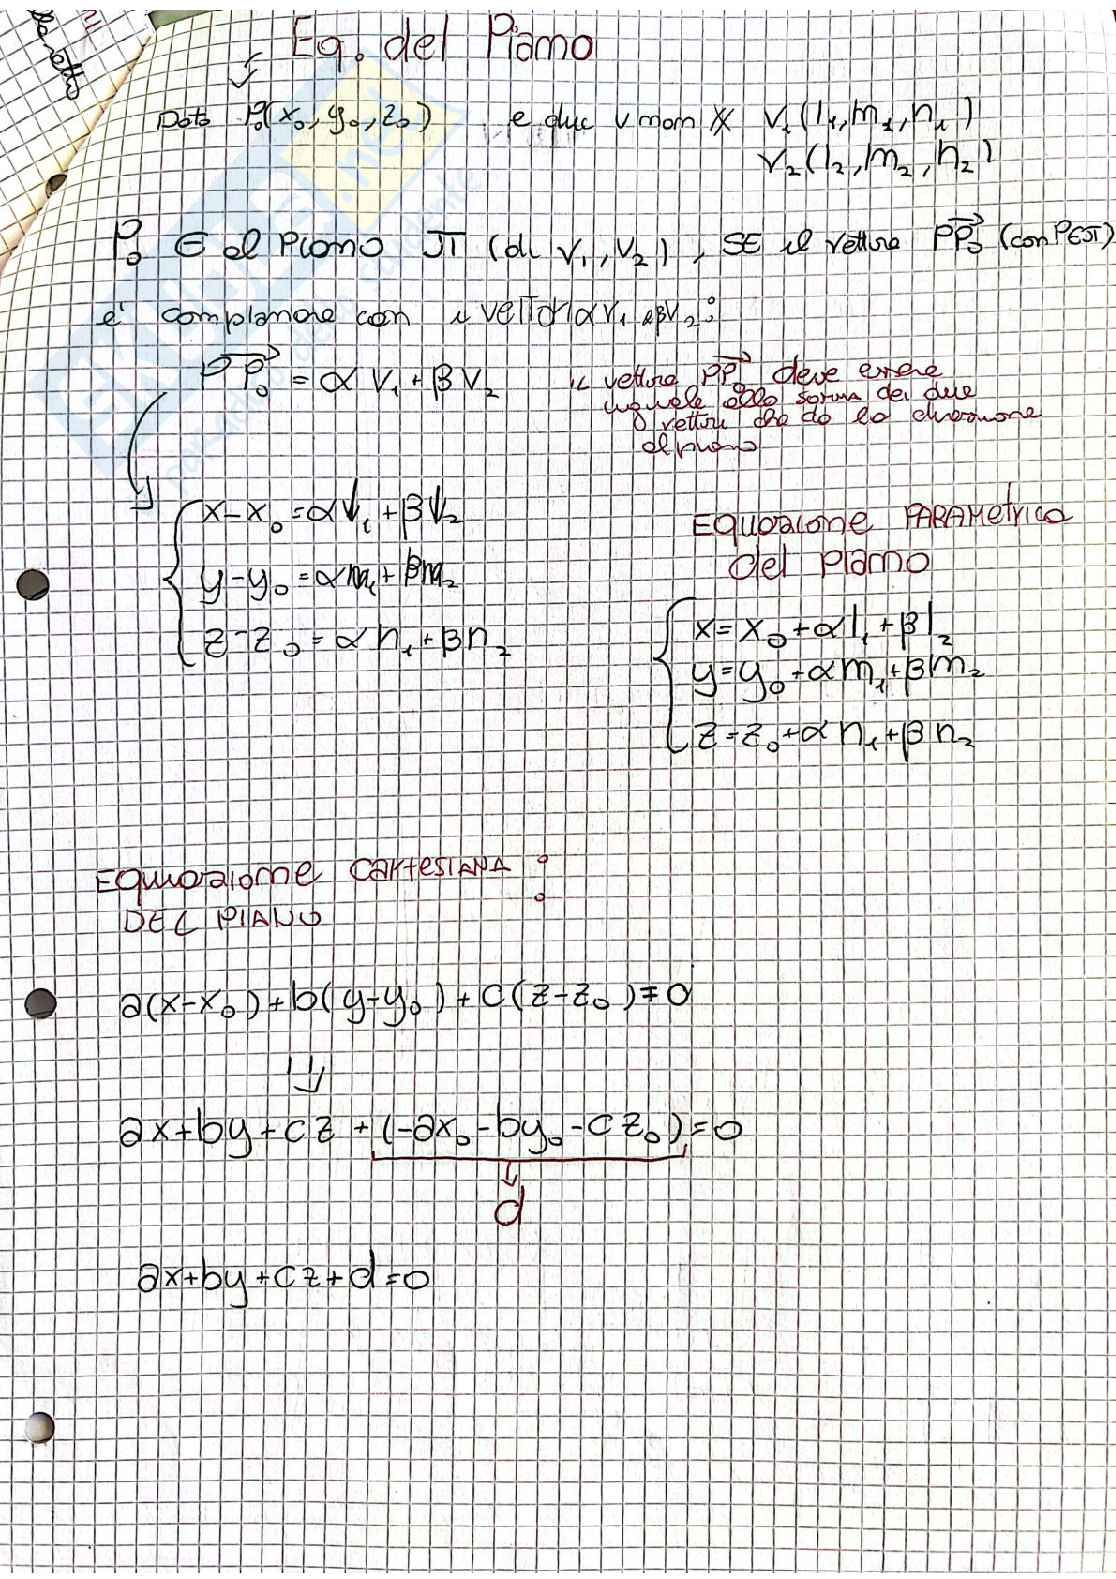 Eq. del Piano
Dato P₀(x₀, y₀, z₀) e due v non ∦ v₁(l₁, m₁, n₁)
v₂(l₂, m₂, n₂)
P₀ ∈ al Piano π (di v₁, v₂), SE il vettore PP₀ (con P∈π)
e' complanare con i vettori αv₁ e βv₂:
PP₀ = α v₁ + β v₂
il vettore PP₀ deve essere
uguale alla somma dei due
vettori che dà la direzione
al piano
x-x₀ = αl₁ + βl₂
y-y₀ = αm₁ + βm₂
z-z₀ = αn₁ + βn₂
Equazione PARAMetrica
del piano
x = x₀ + αl₁ + βl₂
y = y₀ + αm₁ + βm₂
z = z₀ + αn₁ + βn₂
Equazione CARTESIANA :
DEL PIANO
a(x-x₀) + b(y-y₀) + c(z-z₀) = 0
⇓
ax+by+cz + (-ax₀-by₀-cz₀) = 0
d
ax+by+cz+d=0